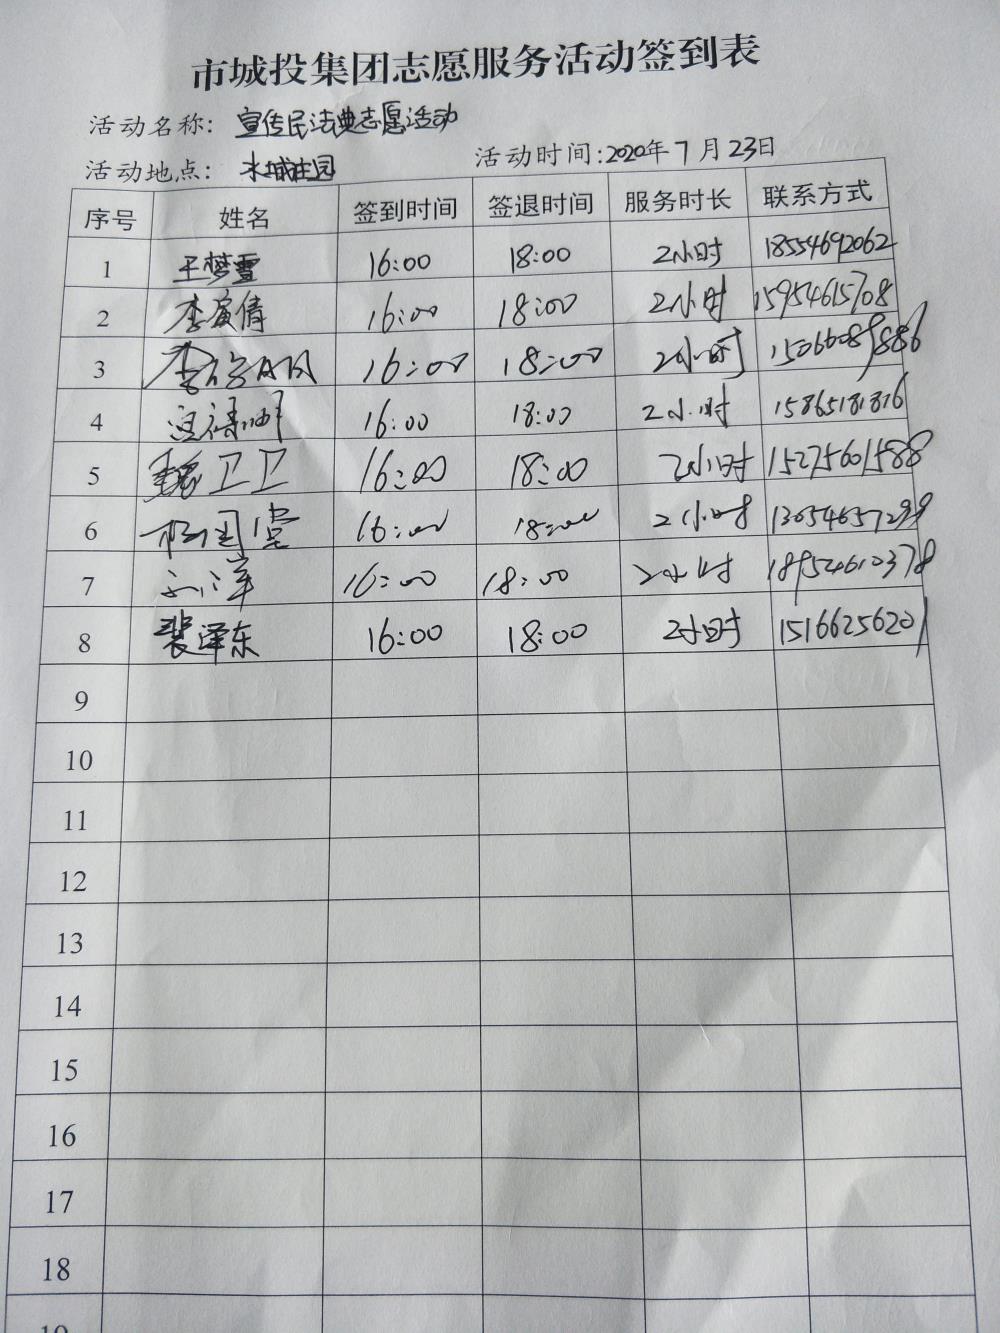 市城投集团志愿服务活动签到表
活动名称: 宣传民法典志愿活动
活动地点: 水城庄园
活动时间:2020年7月23日
序号 姓名 签到时间 签退时间 服务时长 联系方式
1 王梦雪 16:00 18:00 2小时 18554692062
2 李寅倩 16:00 18:00 2小时 15954615708
3 16:00 18:00 2小时 15066089886
4 16:00 18:00 2小时 15865181816
5 魏卫卫 16:00 18:00 2小时 15275601588
6 杨国堂 16:00 18:00 2小时
7 16:00 18:00 2小时 189524612378
8 裴泽东 16:00 18:00 2小时 15166256201
9
10
11
12
13
14
15
16
17
18
19